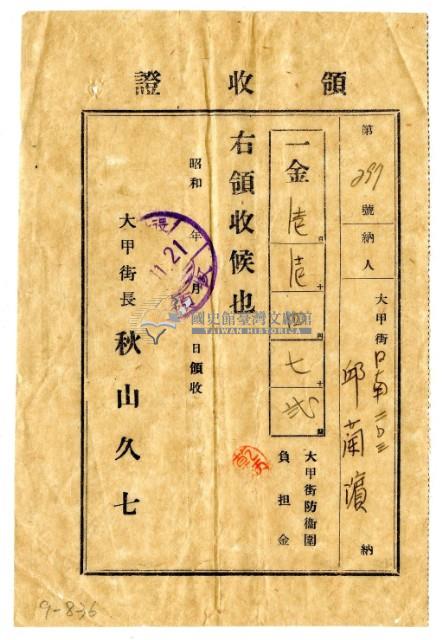 領收證
第297號納人 大甲街日南 邱蘭濱 納
一金 百 十 円七十弐錢
大甲街防衞團
負担金
右領收候也
昭和 年 月 日領收
11.21
大甲街長 秋山久七
國史館臺灣文獻館
TAIWAN HISTORICA
9-8-36